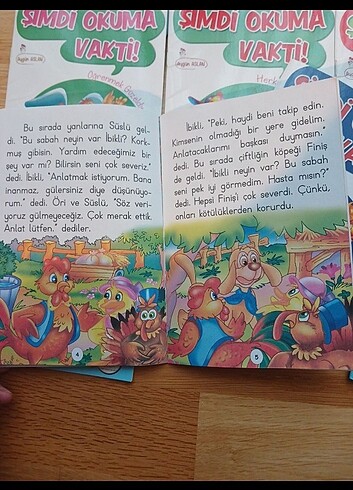 ŞİMDİ OKUMA
VAKTİ!
Aygün ASLAN
ŞİMDİ OKUMA
VAKTİ!
Aygün ASLAN
Bu sırada yanlarına Süslü gel-
di. "Bu sabah neyin var İbikli? Kork-
muş gibisin. Yardım edeceğimiz bir
şey var mı? Bilirsin seni çok severiz."
dedi. İbikli, "Anlatmak istiyorum. Bana
inanmaz, gülersiniz diye düşünüyo-
rum." dedi. Öri ve Süslü, "Söz veri-
yoruz gülmeyeceğiz. Çok merak ettik.
Anlat lütfen." dediler.
4
İbikli, "Peki, haydi beni takip edin.
Kimsenin olmadığı bir yere gidelim.
Anlatacaklarımı başkası duymasın."
dedi. Bu sırada çiftliğin köpeği Finiş
de geldi. "İbikli neyin var? Bu sabah
seni pek iyi görmedim. Hasta mısın?"
dedi. Hepsi Finiş'i çok severdi. Çünkü,
onları kötülüklerden korurdu.
5